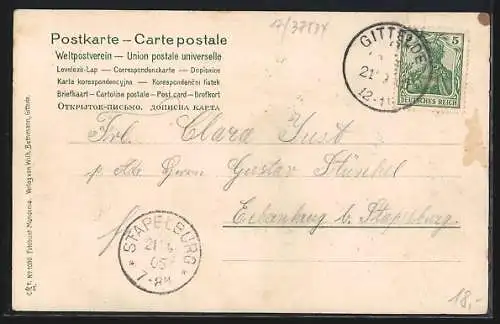 Postkarte – Carte postale
Weltpostverein – Union postale universelle
Levelezö-Lap – Correspondenzkarte – Dopisnice
Karta korespondencyjna – Korespondenční lístek
Briefkaart – Cartoline postale – Post card – Brefkort
Открытое-письмо. дописна карта
GITTELDE
21
12-1
5
DEUTSCHES REICH
Frl. Clara Just
p. Adr. Herrn Gustav Stünkel
b. Stapelburg
STAPELBURG
21
05
7-8N
Verlag von Wilh.
18,-